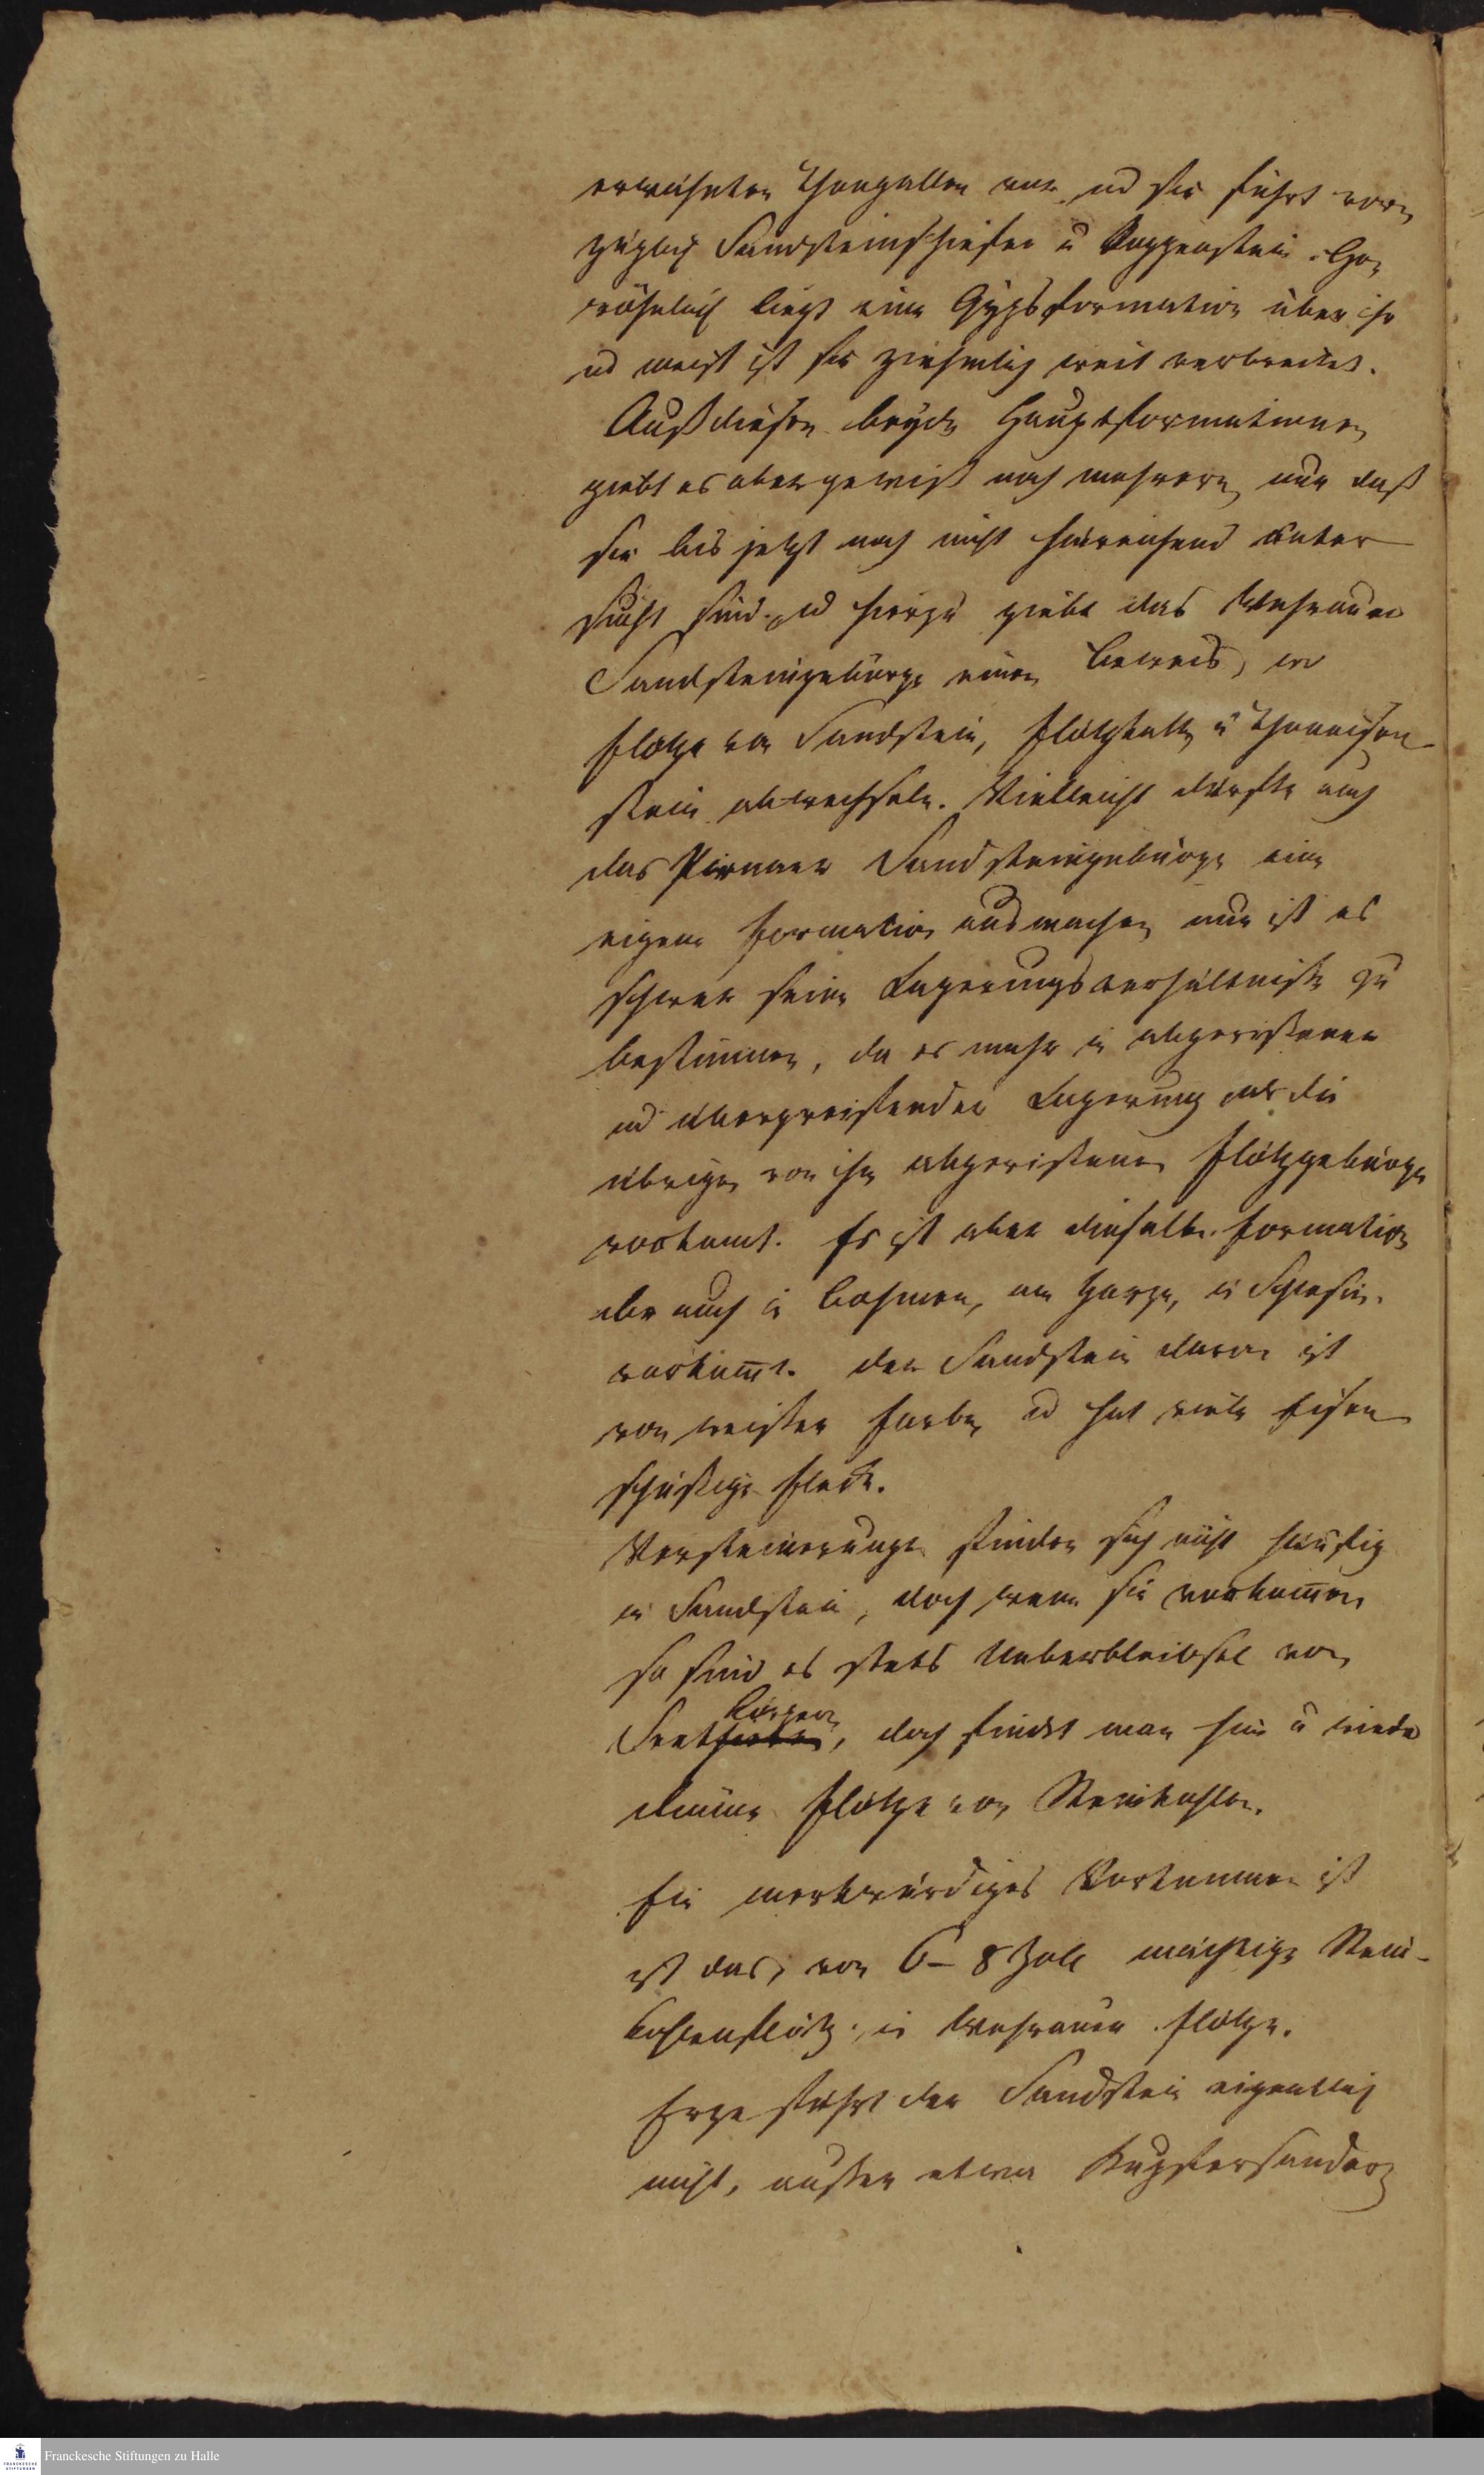 erwähnten Thongallen aus, ud sie führt vor-
züglich Sandsteinschiefer u Roggenstein. Ge-
wöhnlich liegt eine Gypsformation über ihr
ud meist ist sie ziehmlich weit verbreitet.
Außdiesen beyden Hauptformationen
giebt es aber gewiß noch mehrere, nur daß
sie bis jetzt noch nicht hinreichend unter
sucht sind, ud hierzu giebt das Wehrauer
Sandsteingebürge einen Beweis, wo
Flötze von Sandstein, Flötzkalk u Thoneisen-
stein abwechseln. Vielleicht dürfte auch
das Pirnaer Sandsteingebürge eine
eigene Formation ausmachen, nur ist es
schwer seine Lagerungsverhältniße zu
bestimmen, da es mehr in abgerißener
ud übergreifender Lagerung als die
übrigen von ihr abgerißenen Flötzgebürge
vorkomt. Es ist aber dieselbe Formation
die auch in Böhmen, am Harze, in Schlesien
vorkom̅t. Der Sandstein davon ist
von weißer Farbe, ud hat viele Eisen
schüßige Flecke.
Versteinerungen finden sich nicht häufig
in Sandstein, doch wenn sie vorkom̅en
so sind es stets Ueberbleibsel von
Körpern
See, doch findet man hin u wieder
dünne Flötze von Steinkohlen.
Ein merkwürdiges Vorkommen ist
ist das, von 6-8 Zoll mächtige Stein-
kohlenflötz, in Wehrauer Flötze.
Erze führt der Sandstein eigentlich
nicht, außer etwa Kupfersanderz
Franckesche Stiftungen zu Halle